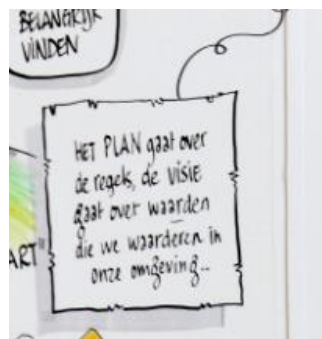 BELANGRIJK
VINDEN
HET PLAN gaat over
de regels, de VISIE
gaat over waarden
die we waarderen in
onze omgeving..
ART"